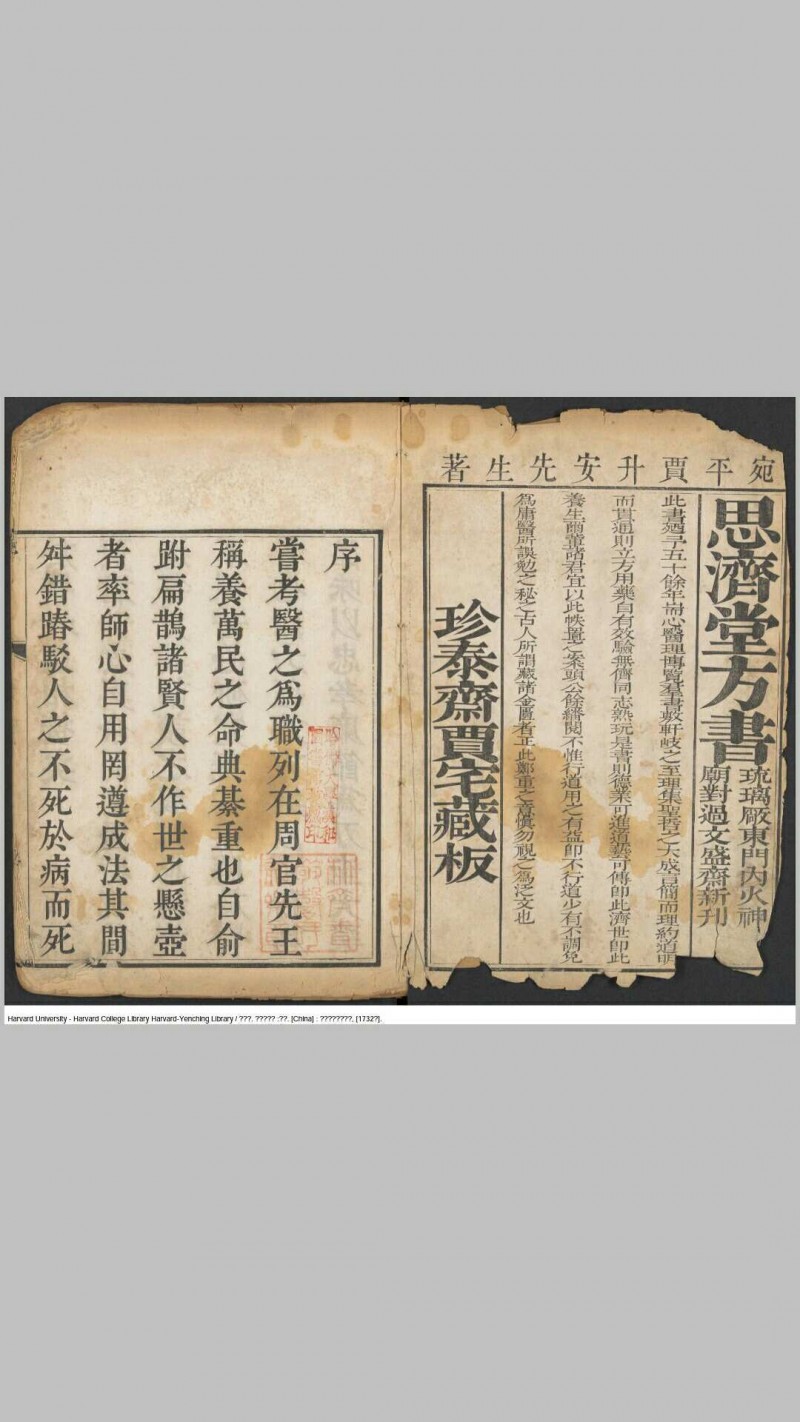 宛平賈升安先生著
思濟堂方書
琉璃厰東門內火神
廟對過文盛齋新刊
此書廼予五十餘年耑心醫理博覽羣書敷軒岐之至理集聖哲之大成言簡而理約道明
而貫通則立方用藥自有效驗無儕同志熟玩是書則德業可進道藝可傳即此濟世即此
養生爾董諸君宜以此帙置之案頭公餘繙閱不惟行道用之有益即不行道少有不調免
為庸醫所誤勉之秘之古人所謂藏諸金匱者正此鄭重之意慎勿視之為泛文也
珍泰齋賈宅藏板
序
嘗考醫之爲職列在周官先王
稱養萬民之命典綦重也自俞
跗扁鵲諸賢人不作世之懸壺
者率師心自用罔遵成法其間
舛錯踳駁人之不死於病而死
Harvard University - Harvard College Library Harvard-Yenching Library / ???. ????? :??. [China] : ????????, [1732?].